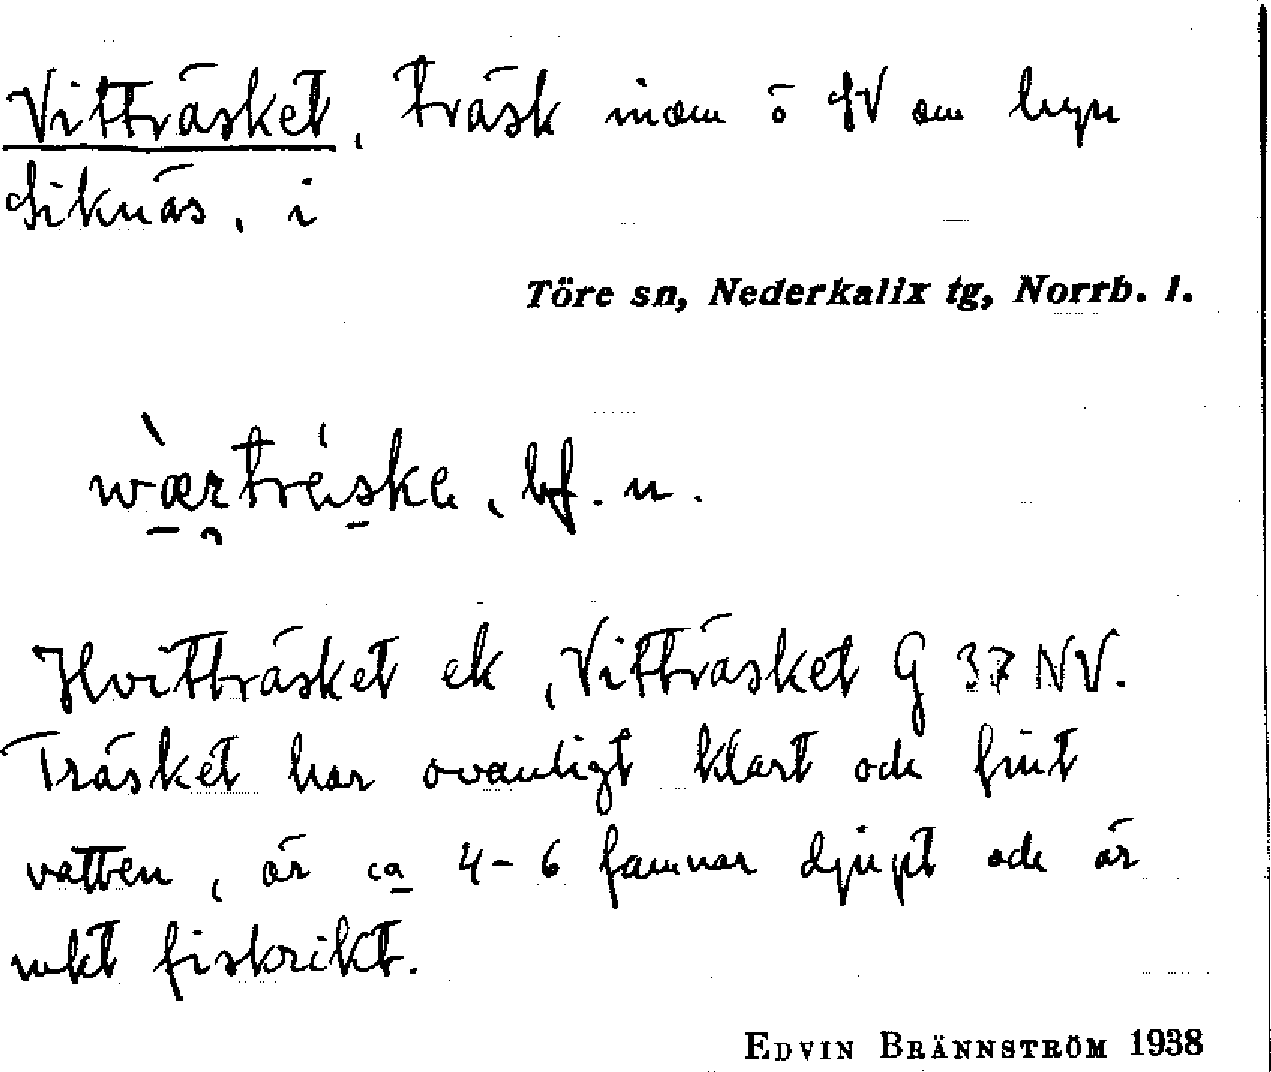 Vitträsket, träsk inom ö SV om byn
Siknäs, i
Töre sn, Nederkalix tg, Norrb. l.
bf. n.
Hvitträsket ek, Vitträsket G 37 NV.
Träsket har ovanligt klart och fint
vatten, är ca 4-6 famnar djupt och är
rikt fiskrikt.
EDVIN BRÄNNSTRÖM 1938